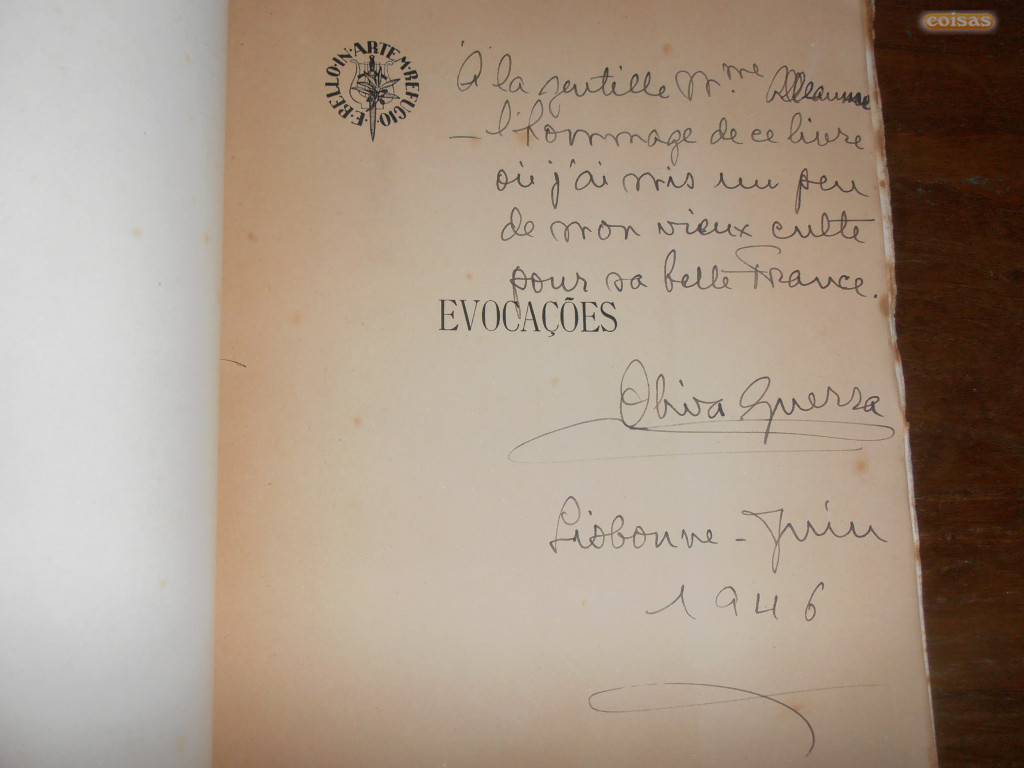 coisas
E·BELLO·IN·ARTEM·REFUGIO·
À la gentille Mme
— l'hommage de ce livre
où j'ai mis un peu
de mon vieux culte
pour sa belle France.
EVOCAÇÕES
Oliva Guerra
Lisbonne - Juin
1946